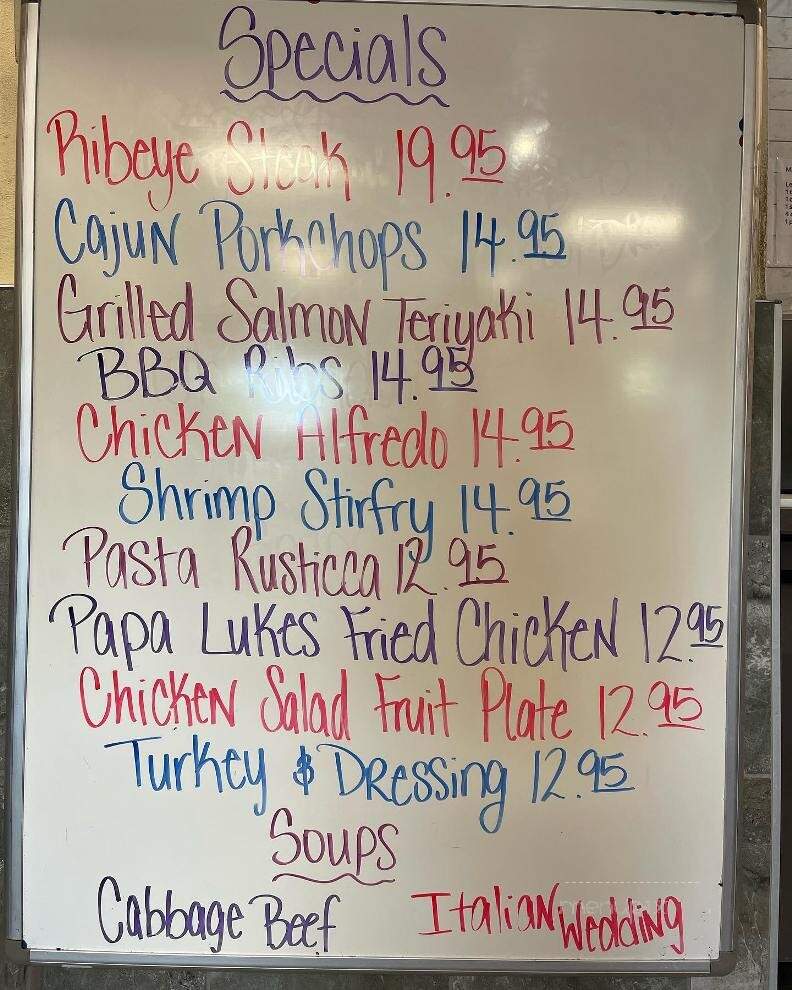 Specials
Ribeye Steak 19.95
Cajun Porkchops 14.95
Grilled Salmon Teriyaki 14.95
BBQ Ribs 14.95
Chicken Alfredo 14.95
Shrimp Stirfry 14.95
Pasta Rusticca 12.95
Papa Lukes Fried Chicken 12.95
Chicken Salad Fruit Plate 12.95
Turkey & Dressing 12.95
Soups
Cabbage Beef Italian Wedding